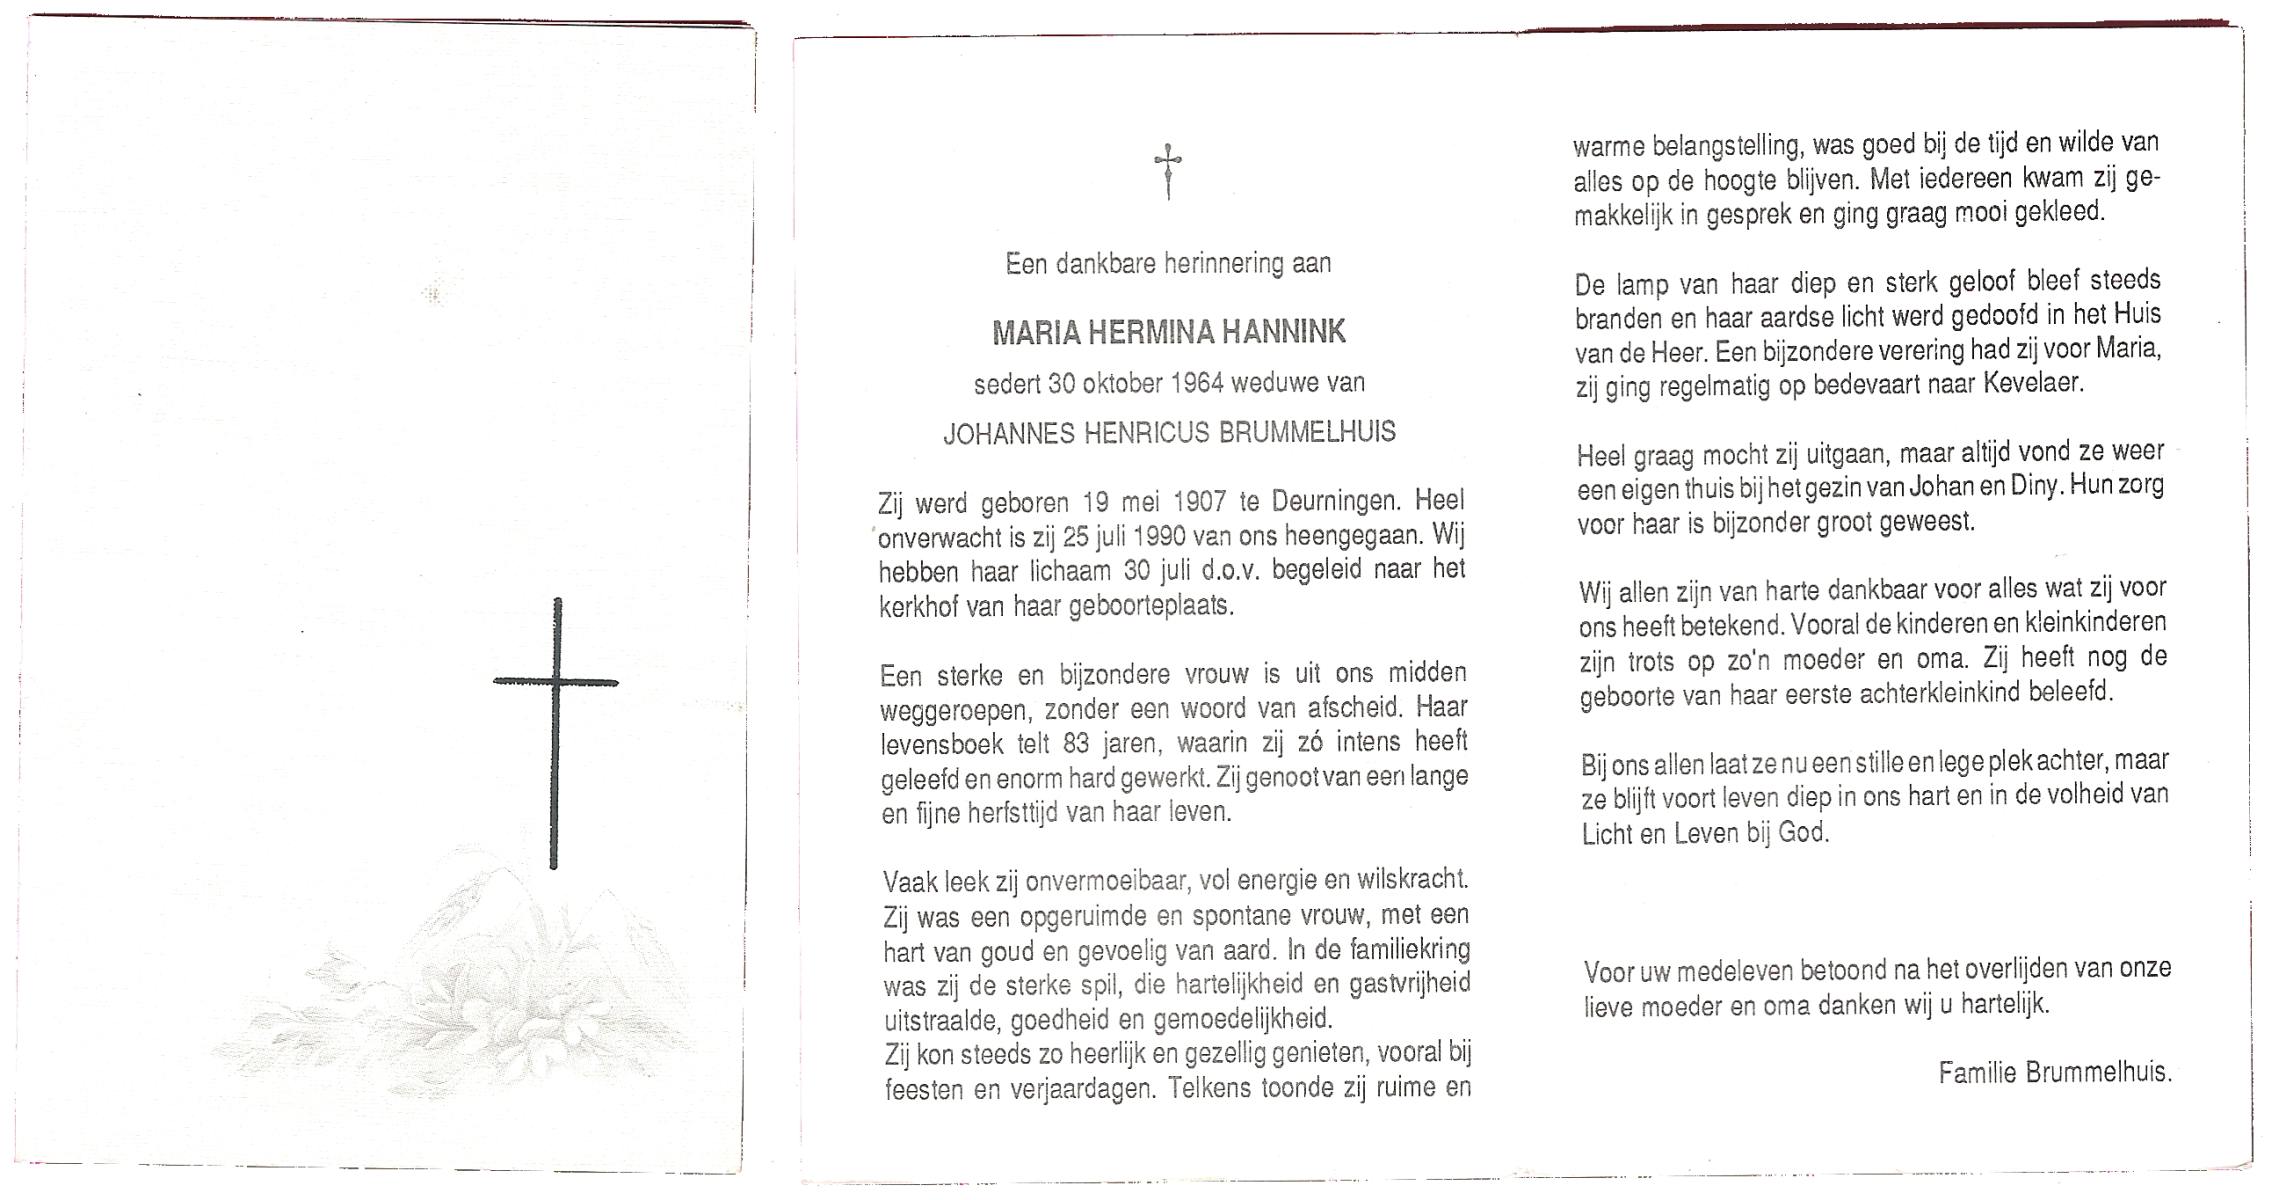 Een dankbare herinnering aan
MARIA HERMINA HANNINK
sedert 30 oktober 1964 weduwe van
JOHANNES HENRICUS BRUMMELHUIS
Zij werd geboren 19 mei 1907 te Deurningen. Heel
onverwacht is zij 25 juli 1990 van ons heengegaan. Wij
hebben haar lichaam 30 juli d.o.v. begeleid naar het
kerkhof van haar geboorteplaats.
Een sterke en bijzondere vrouw is uit ons midden
weggeroepen, zonder een woord van afscheid. Haar
levensboek telt 83 jaren, waarin zij zó intens heeft
geleefd en enorm hard gewerkt. Zij genoot van een lange
en fijne herfsttijd van haar leven.
Vaak leek zij onvermoeibaar, vol energie en wilskracht.
Zij was een opgeruimde en spontane vrouw, met een
hart van goud en gevoelig van aard. In de familiekring
was zij de sterke spil, die hartelijkheid en gastvrijheid
uitstraalde, goedheid en gemoedelijkheid.
Zij kon steeds zo heerlijk en gezellig genieten, vooral bij
feesten en verjaardagen. Telkens toonde zij ruime en
warme belangstelling, was goed bij de tijd en wilde van
alles op de hoogte blijven. Met iedereen kwam zij ge-
makkelijk in gesprek en ging graag mooi gekleed.
De lamp van haar diep en sterk geloof bleef steeds
branden en haar aardse licht werd gedoofd in het Huis
van de Heer. Een bijzondere verering had zij voor Maria,
zij ging regelmatig op bedevaart naar Kevelaer.
Heel graag mocht zij uitgaan, maar altijd vond ze weer
een eigen thuis bij het gezin van Johan en Diny. Hun zorg
voor haar is bijzonder groot geweest.
Wij allen zijn van harte dankbaar voor alles wat zij voor
ons heeft betekend. Vooral de kinderen en kleinkinderen
zijn trots op zo'n moeder en oma. Zij heeft nog de
geboorte van haar eerste achterkleinkind beleefd.
Bij ons allen laat ze nu een stille en lege plek achter, maar
ze blijft voort leven diep in ons hart en in de volheid van
Licht en Leven bij God.
Voor uw medeleven betoond na het overlijden van onze
lieve moeder en oma danken wij u hartelijk.
Familie Brummelhuis.